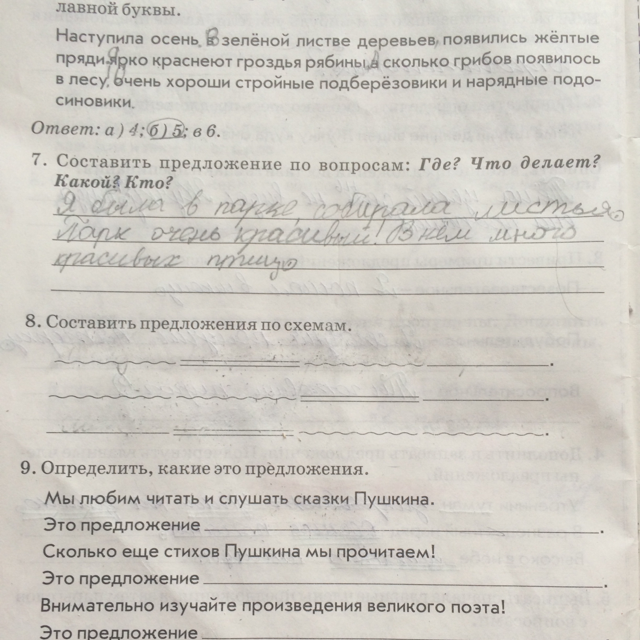 лавной буквы.
Наступила осень, в зелёной листве деревьев, появились жёлтые
пряди. ярко краснеют гроздья рябины, а сколько грибов появилось
в лесу, очень хороши стройные подберёзовики и нарядные подо-
синовики.
Ответ: а) 4; б) 5; в 6.
7. Составить предложение по вопросам: Где? Что делает?
Какой? Кто?
Я была в парке собирала листья.
Парк очень красивый! В нём много
красивых птиц.
8. Составить предложения по схемам.
9. Определить, какие это предложения.
Мы любим читать и слушать сказки Пушкина.
Это предложение
Сколько еще стихов Пушкина мы прочитаем!
Это предложение
Внимательно изучайте произведения великого поэта!
Это предложение